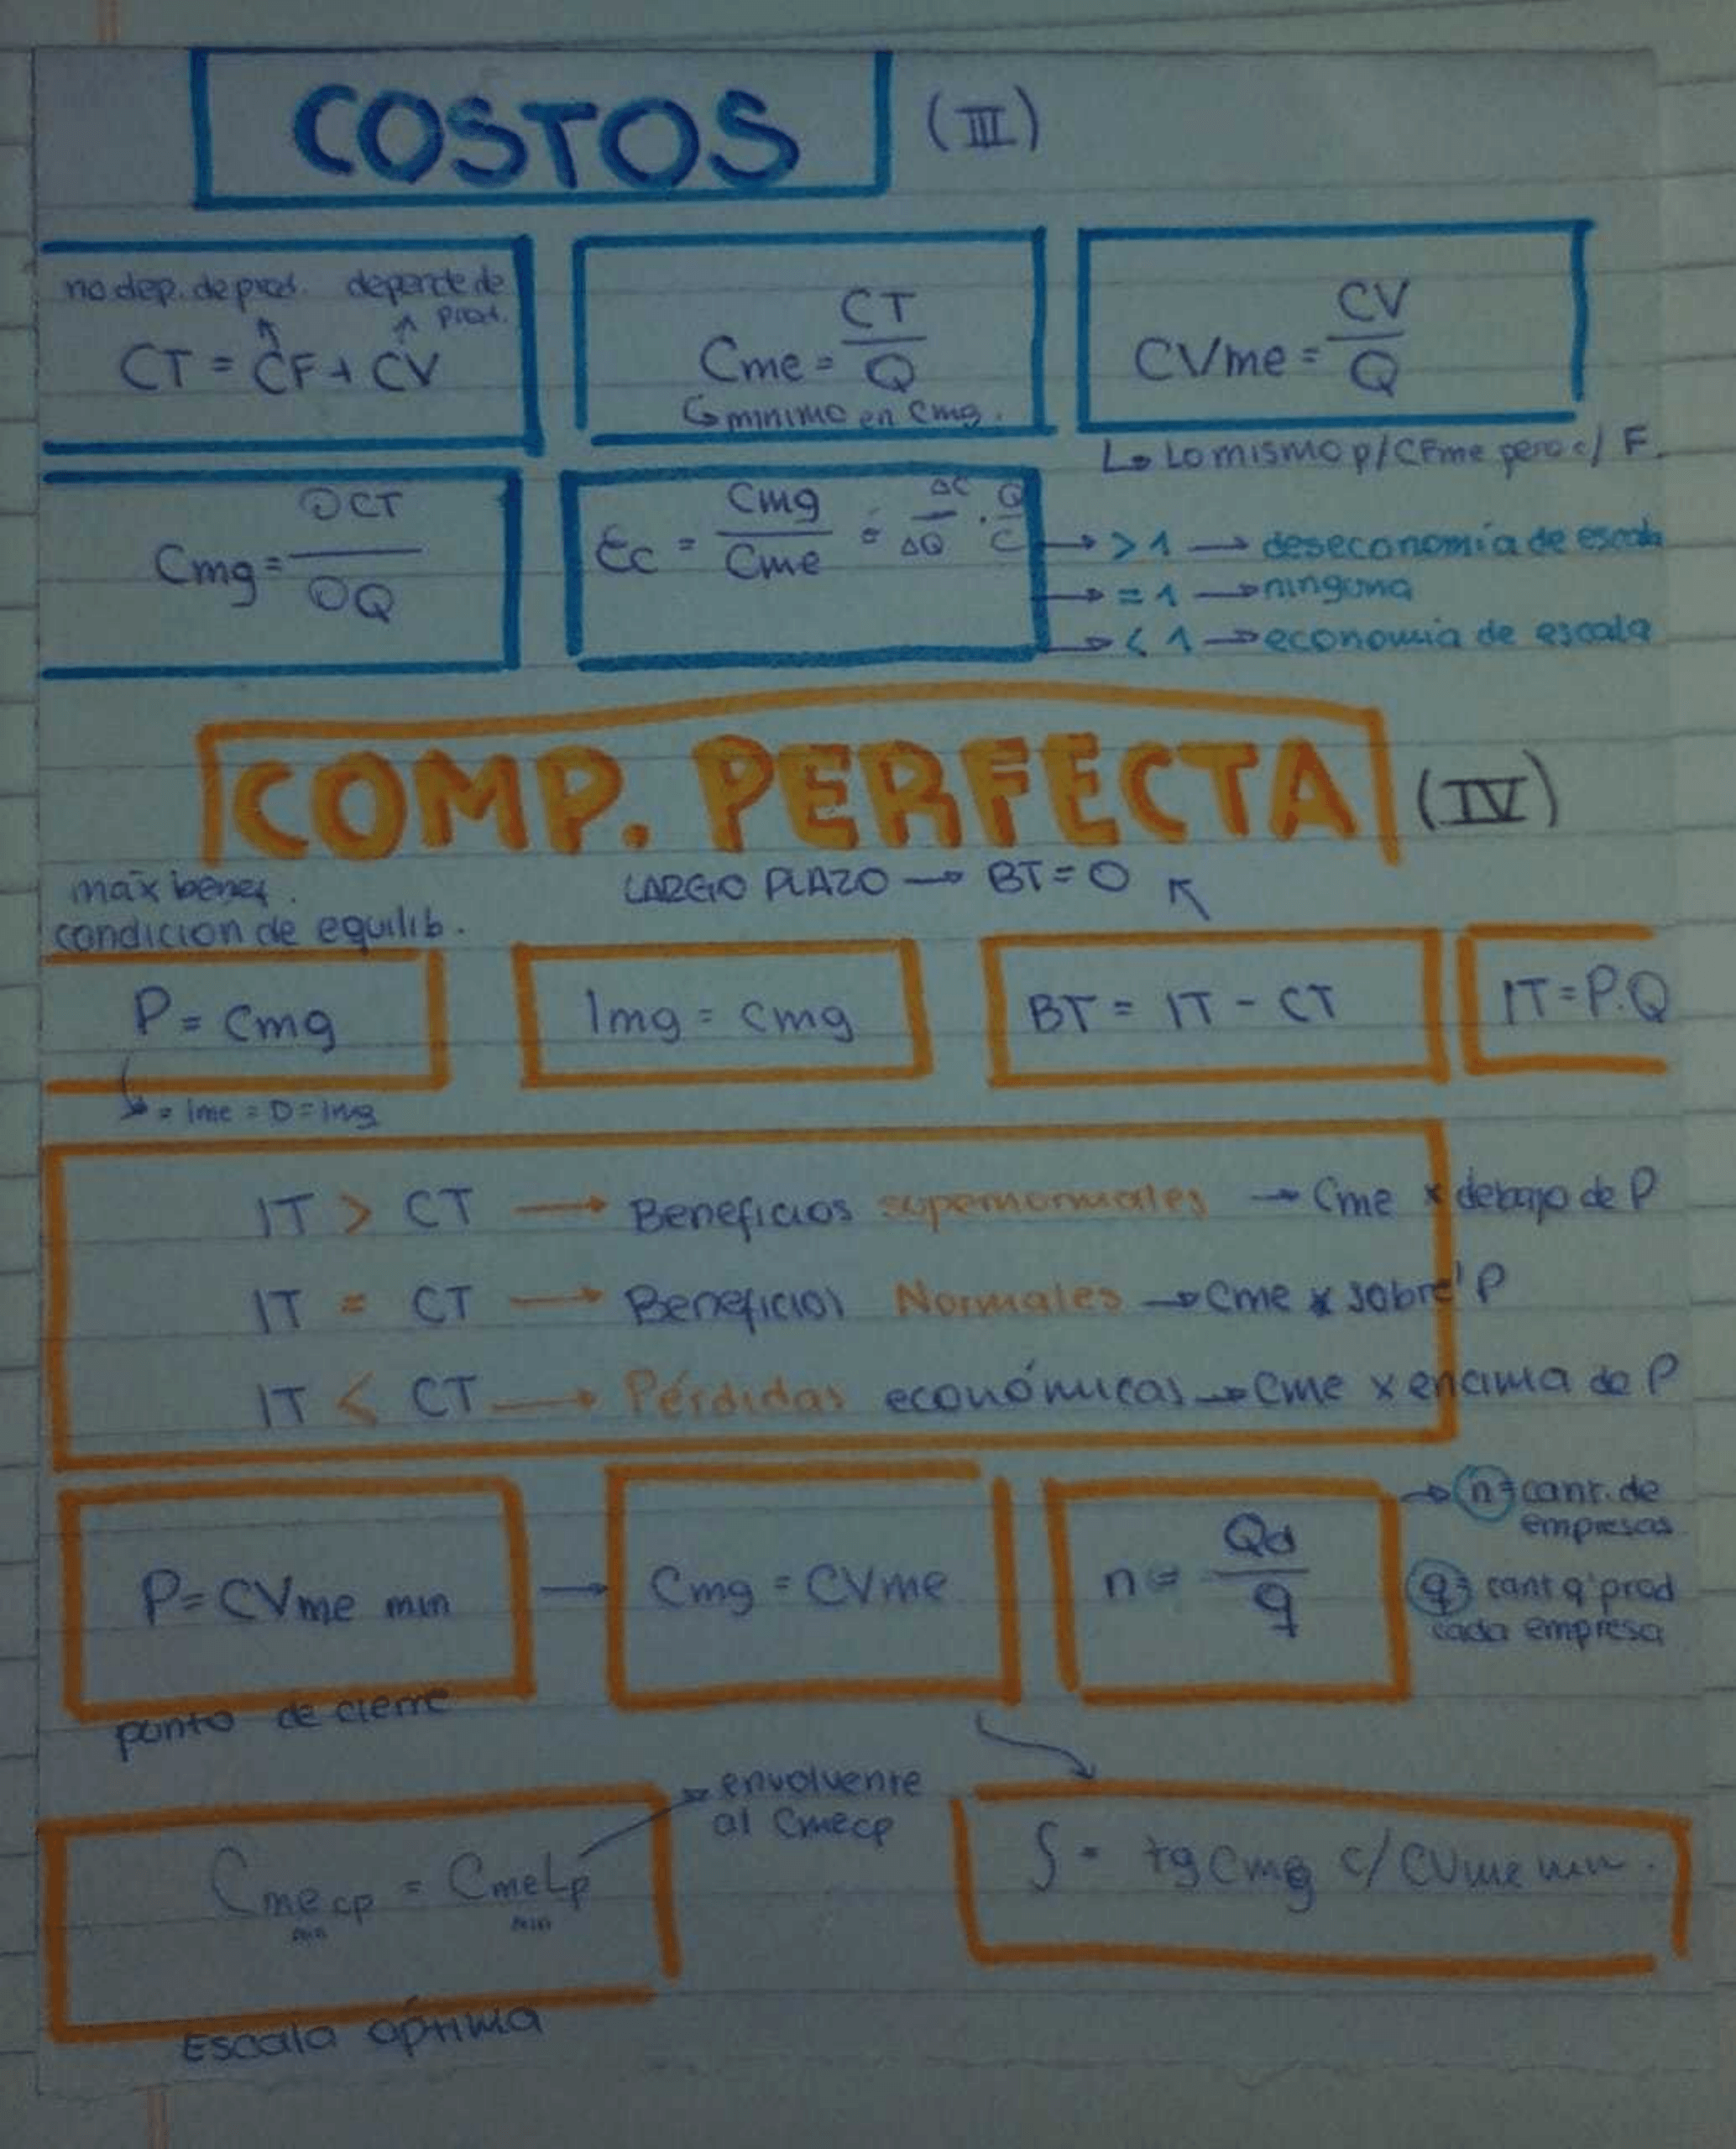 COSTOS (III)
no dep. de prod. depende de prod.
CT = CF + CV
Cme = CT / Q
↳ minimo en Cmg.
CVme = CV / Q
↳ Lo mismo p/ CFme pero c/ F.
Cmg = ∂CT / ∂Q
Ec = Cmg / Cme = ΔC / ΔQ . Q / C
→ > 1 → deseconomía de escala
→ = 1 → ninguna
→ < 1 → economia de escala
COMP. PERFECTA (IV)
máx benef.
condicion de equilib.
LARGO PLAZO → BT = 0
P = Cmg
Img = Cmg
BT = IT - CT
IT = P.Q
↳ = Ime = D = Img
IT > CT → Beneficios supernormales → Cme x debajo de P
IT = CT → Beneficios Normales → Cme x sobre P
IT < CT → Pérdidas económicas → Cme x encima de P
P = CVme min
punto de cierre
→ Cmg = CVme
n = Qd / q
→ n = cant. de
empresas
q = cant q' prod
cada empresa
Cme cp = CmeLp
min min
→ envolvente
al Cmecp
Escala óptima
S = tg Cmg c/ CVme min.